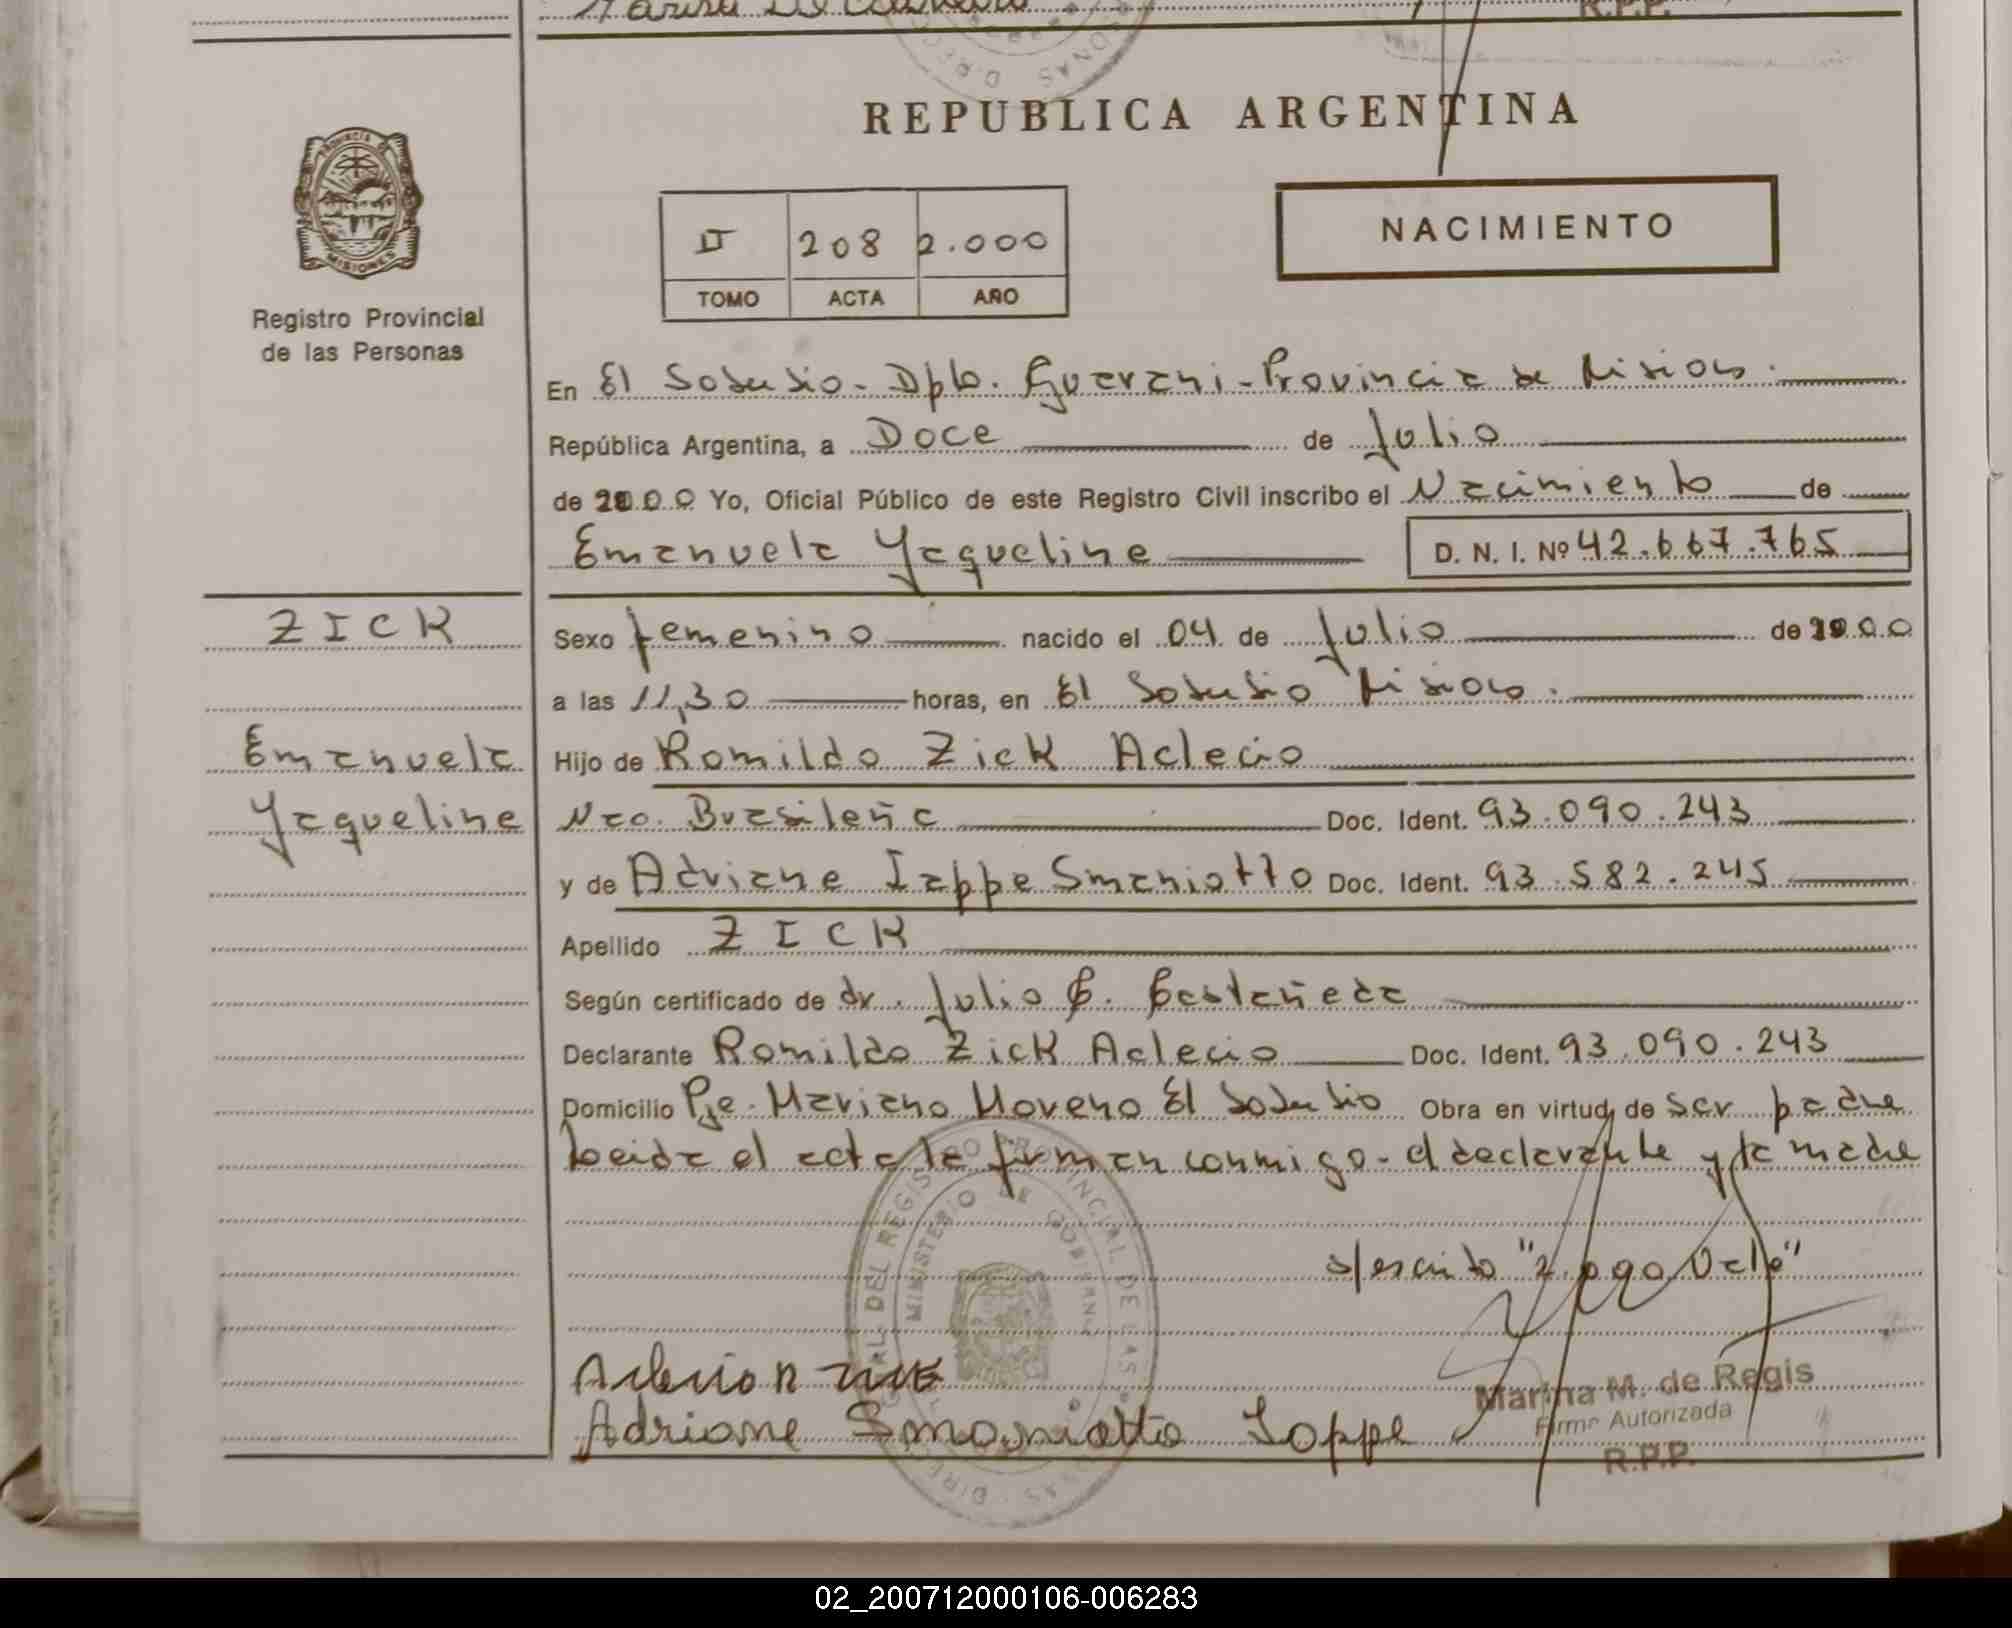 R.P.P.
REPUBLICA ARGENTINA
PROVINCIA DE
MISIONES
Registro Provincial
de las Personas
II 208 2.000
TOMO ACTA AÑO
NACIMIENTO
En El Soberbio - Dpto. Guarani - Provincia de Misiones.
República Argentina, a Doce de Julio
de 2000 Yo, Oficial Público de este Registro Civil inscribo el Nacimiento de
Emanuela Yaqueline D. N. I. Nº 42.667.765
ZICK
Sexo femenino nacido el 04 de Julio de 2000
a las 11,30 horas, en El Soberbio Misiones.
Emanuela
Hijo de Romildo Zick Aclecio
Yaqueline
Nac. Brasileña Doc. Ident. 93.090.243
y de Adriane Iappe Smaniotto Doc. Ident. 93.582.245
Apellido ZICK
Según certificado de dr. Julio C. Castañeda
Declarante Romildo Zick Aclecio Doc. Ident. 93.090.243
Domicilio Pje. Mariano Moreno El Soberbio Obra en virtud de ser padre
Leida el acta la firman conmigo - el declarante y la madre
s/escrito "2.000 Vale"
Adriane Smaniotto Ioppe
Marina M. de Regis
Firma Autorizada
R.P.P.
02_200712000106-006283